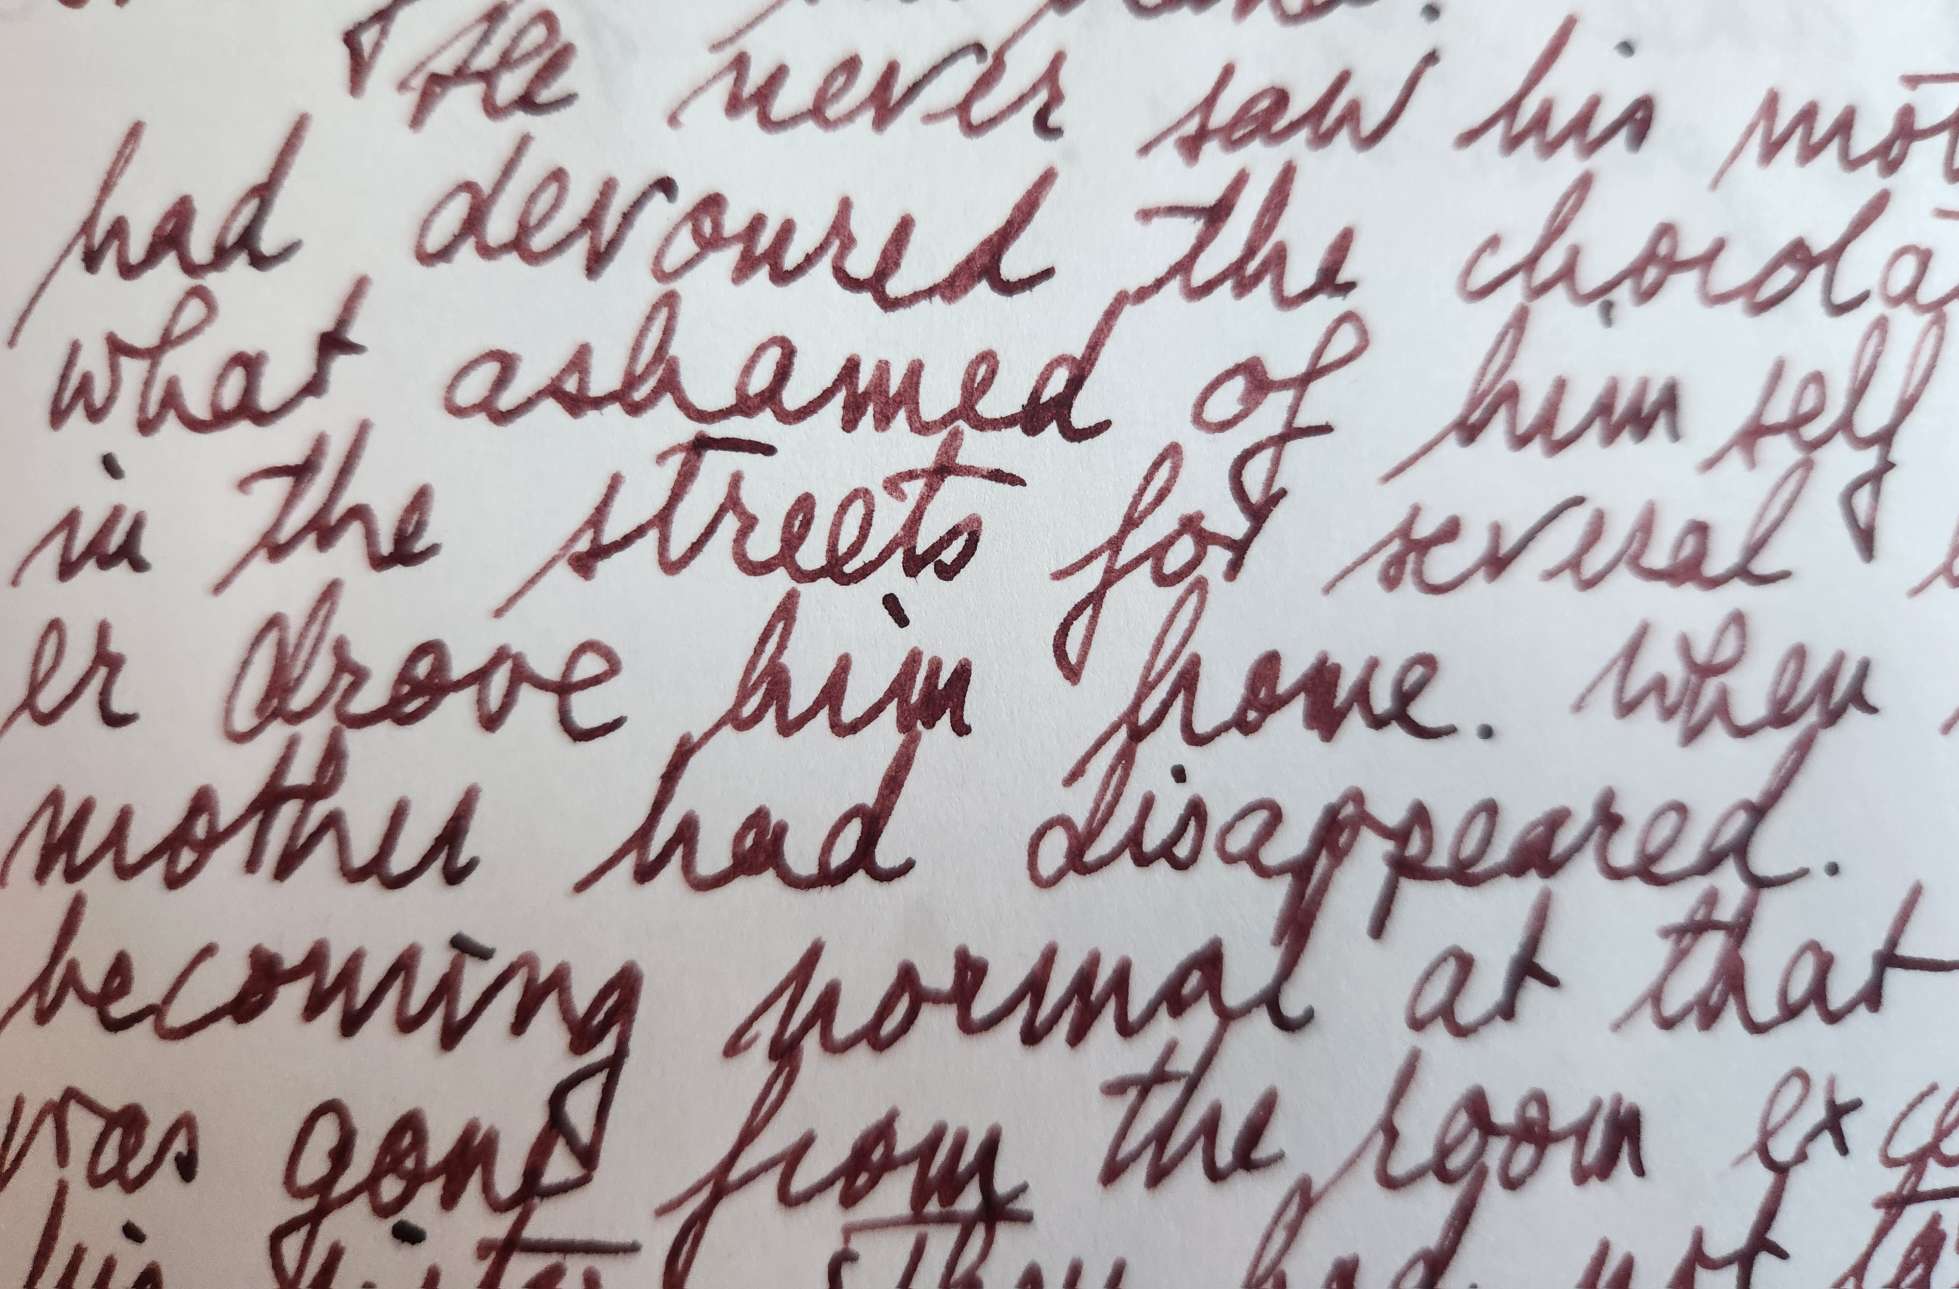 He never saw his mot
had devoured the chocola
what ashamed of himself
in the streets for several
er drove him home. When
mother had disappeared.
becoming normal at that
was gone from the room exce
his sister. They had not ta